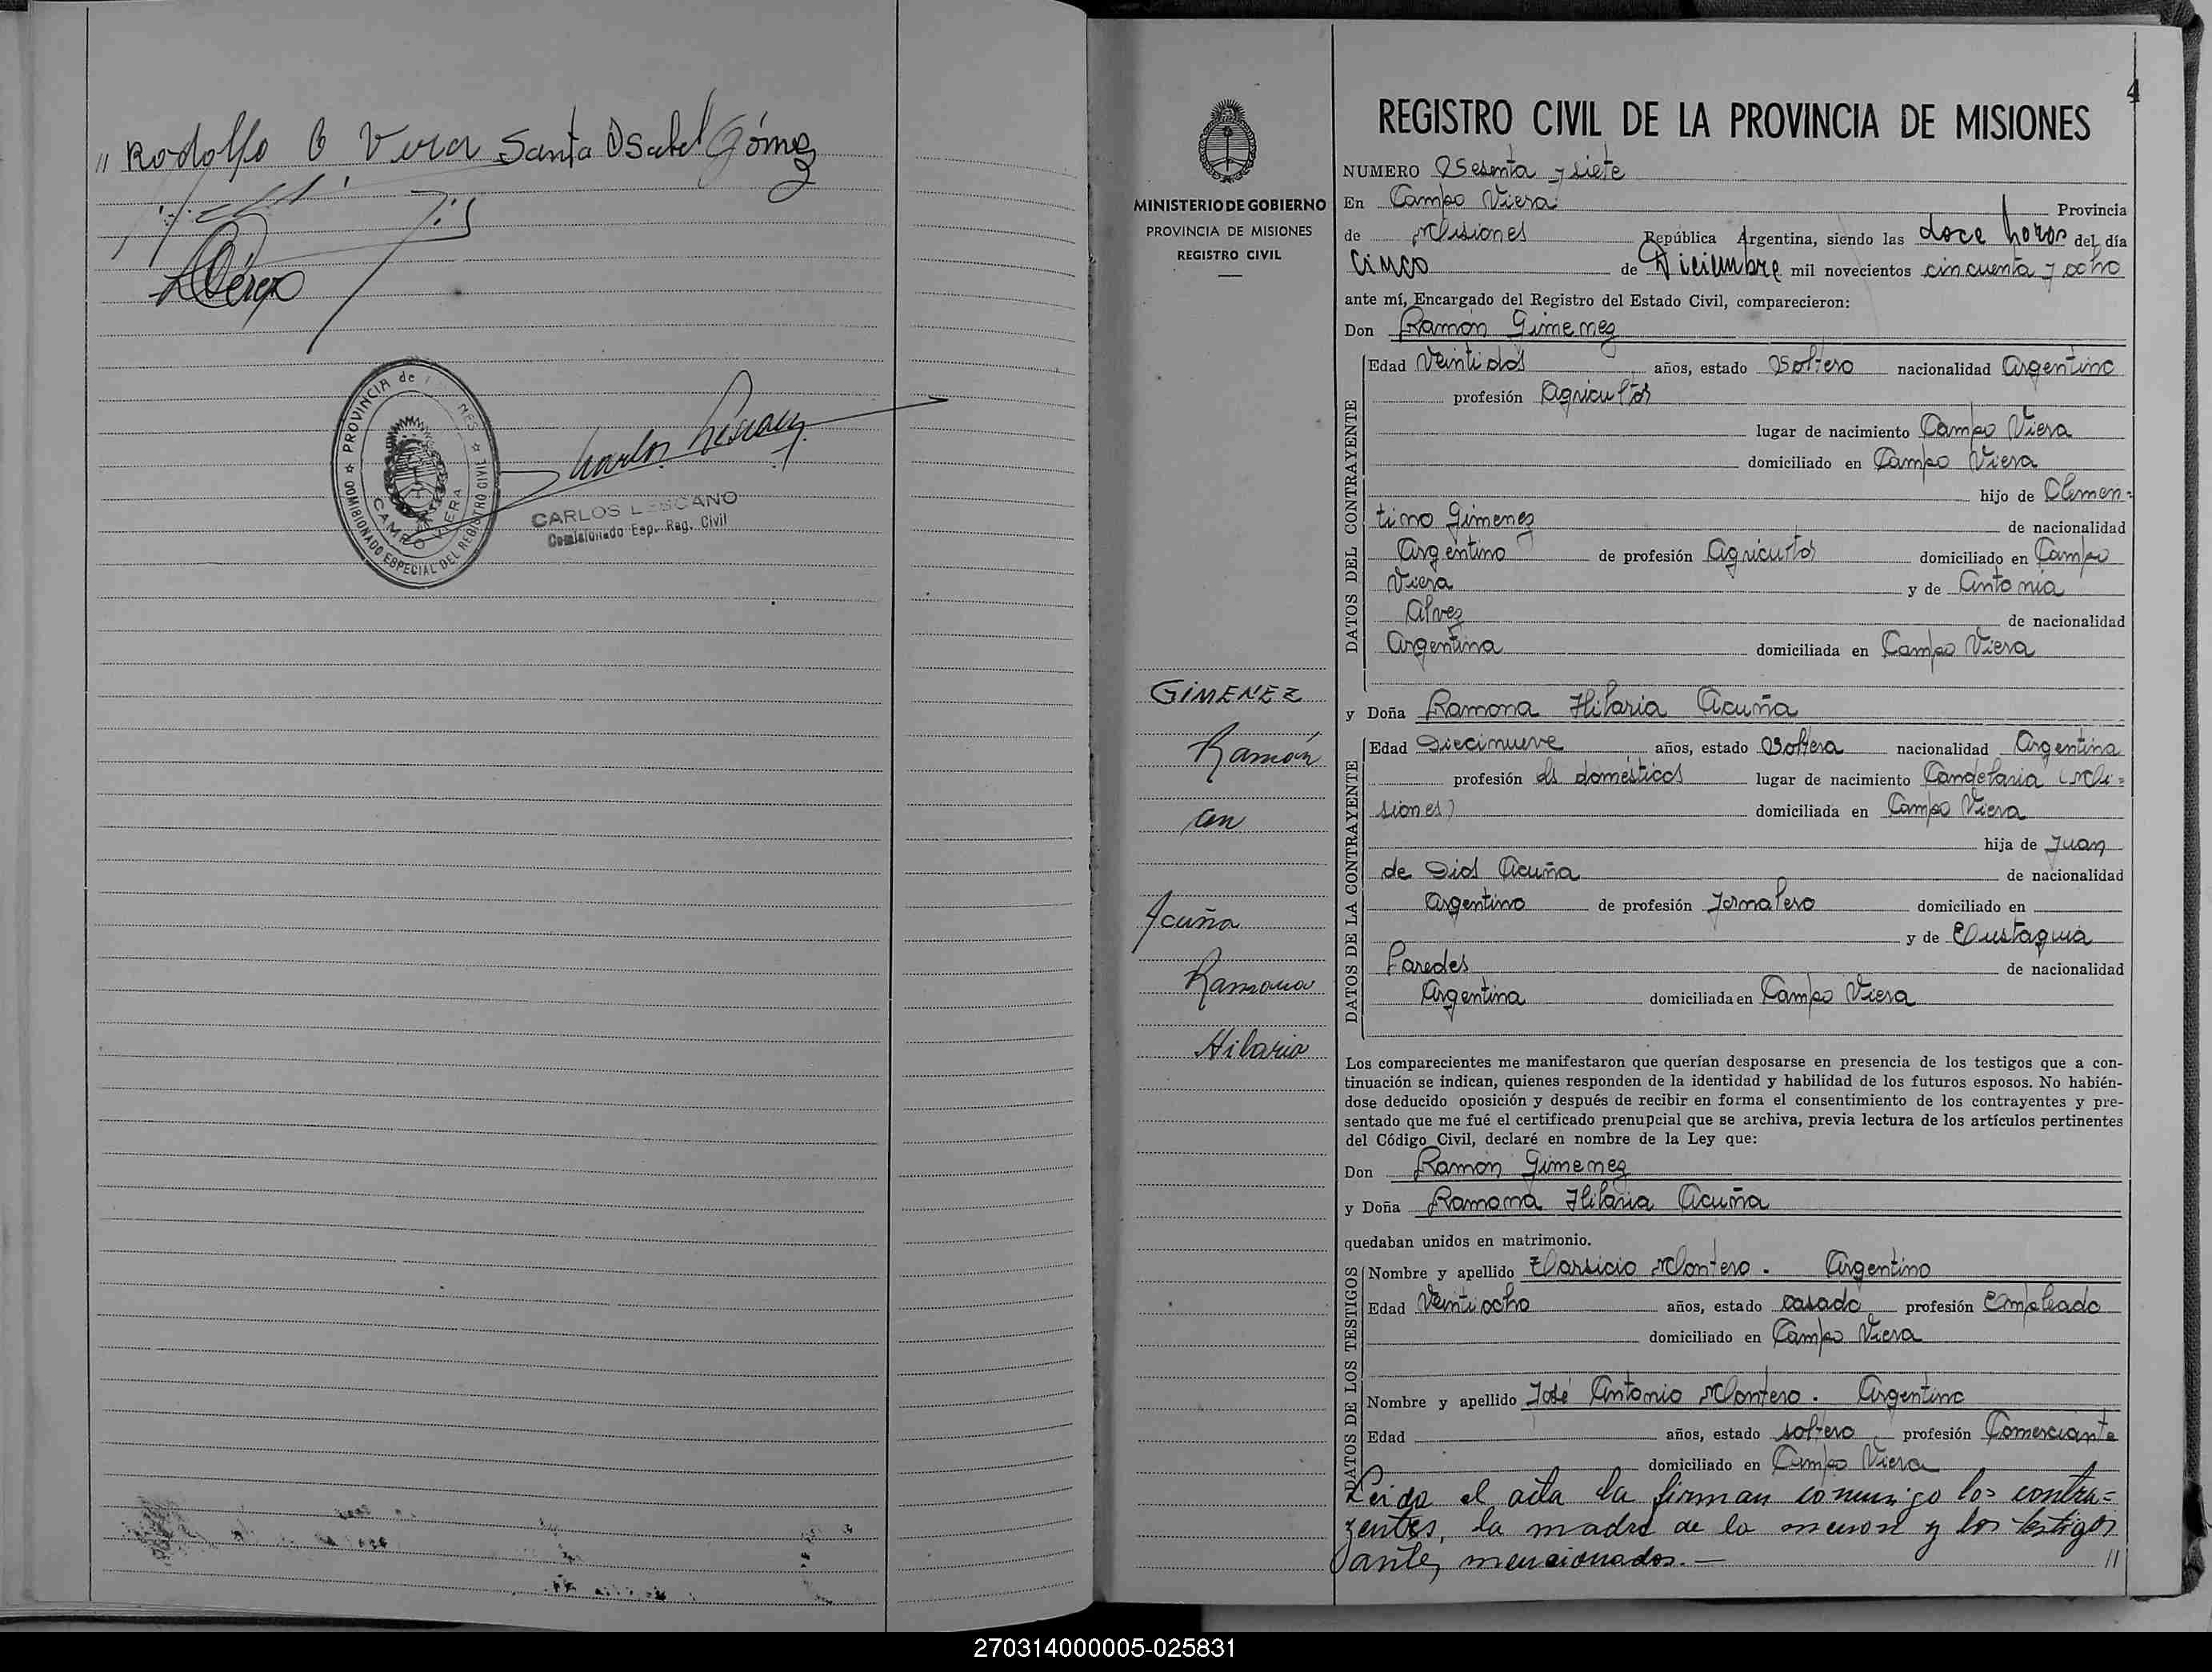 " Rodolfo C Vera Santa Isabel Gómez
PROVINCIA de
COMISIONADO ESPECIAL DEL REGISTRO CIVIL
CAMPO VIERA
CARLOS LESCANO
Comisionado Esp. Reg. Civil
4
MINISTERIO DE GOBIERNO
PROVINCIA DE MISIONES
REGISTRO CIVIL
GIMENEZ
Ramón
con
Acuña
Ramona
Hilaria
REGISTRO CIVIL DE LA PROVINCIA DE MISIONES
NUMERO Sesenta y siete
En Campo Viera Provincia
de Misiones República Argentina, siendo las doce horas del día
Cinco de Diciembre mil novecientos cincuenta y ocho
ante mí, Encargado del Registro del Estado Civil, comparecieron:
Don Ramón Gimenez
DATOS DEL CONTRAYENTE
Edad Veintidos años, estado Soltero nacionalidad Argentino
profesión Agricultor
lugar de nacimiento Campo Viera
domiciliado en Campo Viera
hijo de Clemen=
tino Gimenez de nacionalidad
Argentino de profesión Agricultor domiciliado en Campo
Viera y de Antonia
Alvez de nacionalidad
Argentina domiciliada en Campo Viera
y Doña Ramona Hilaria Acuña
DATOS DE LA CONTRAYENTE
Edad Diecinueve años, estado Soltera nacionalidad Argentina
profesión qls domésticos lugar de nacimiento Candelaria (Mi=
siones) domiciliada en Campo Viera
hija de Juan
de Dios Acuña de nacionalidad
Argentino de profesión Jornalero domiciliado en
y de Eustaquia
Paredes de nacionalidad
Argentina domiciliada en Campo Viera
Los comparecientes me manifestaron que querían desposarse en presencia de los testigos que a con-
tinuación se indican, quienes responden de la identidad y habilidad de los futuros esposos. No habién-
dose deducido oposición y después de recibir en forma el consentimiento de los contrayentes y pre-
sentado que me fué el certificado prenupcial que se archiva, previa lectura de los artículos pertinentes
del Código Civil, declaré en nombre de la Ley que:
Don Ramón Gimenez
y Doña Ramona Hilaria Acuña
quedaban unidos en matrimonio.
DATOS DE LOS TESTIGOS
Nombre y apellido Tarsicio Montero. Argentino
Edad Veintiocho años, estado casado profesión Empleado
domiciliado en Campo Viera
Nombre y apellido José Antonio Montero. Argentino
Edad años, estado soltero profesión Comerciante
domiciliado en Campo Viera
Leida el acta la firman conmigo los contra=
yentes, la madre de la menor y los testigos
antes mencionados.— "
270314000005-025831